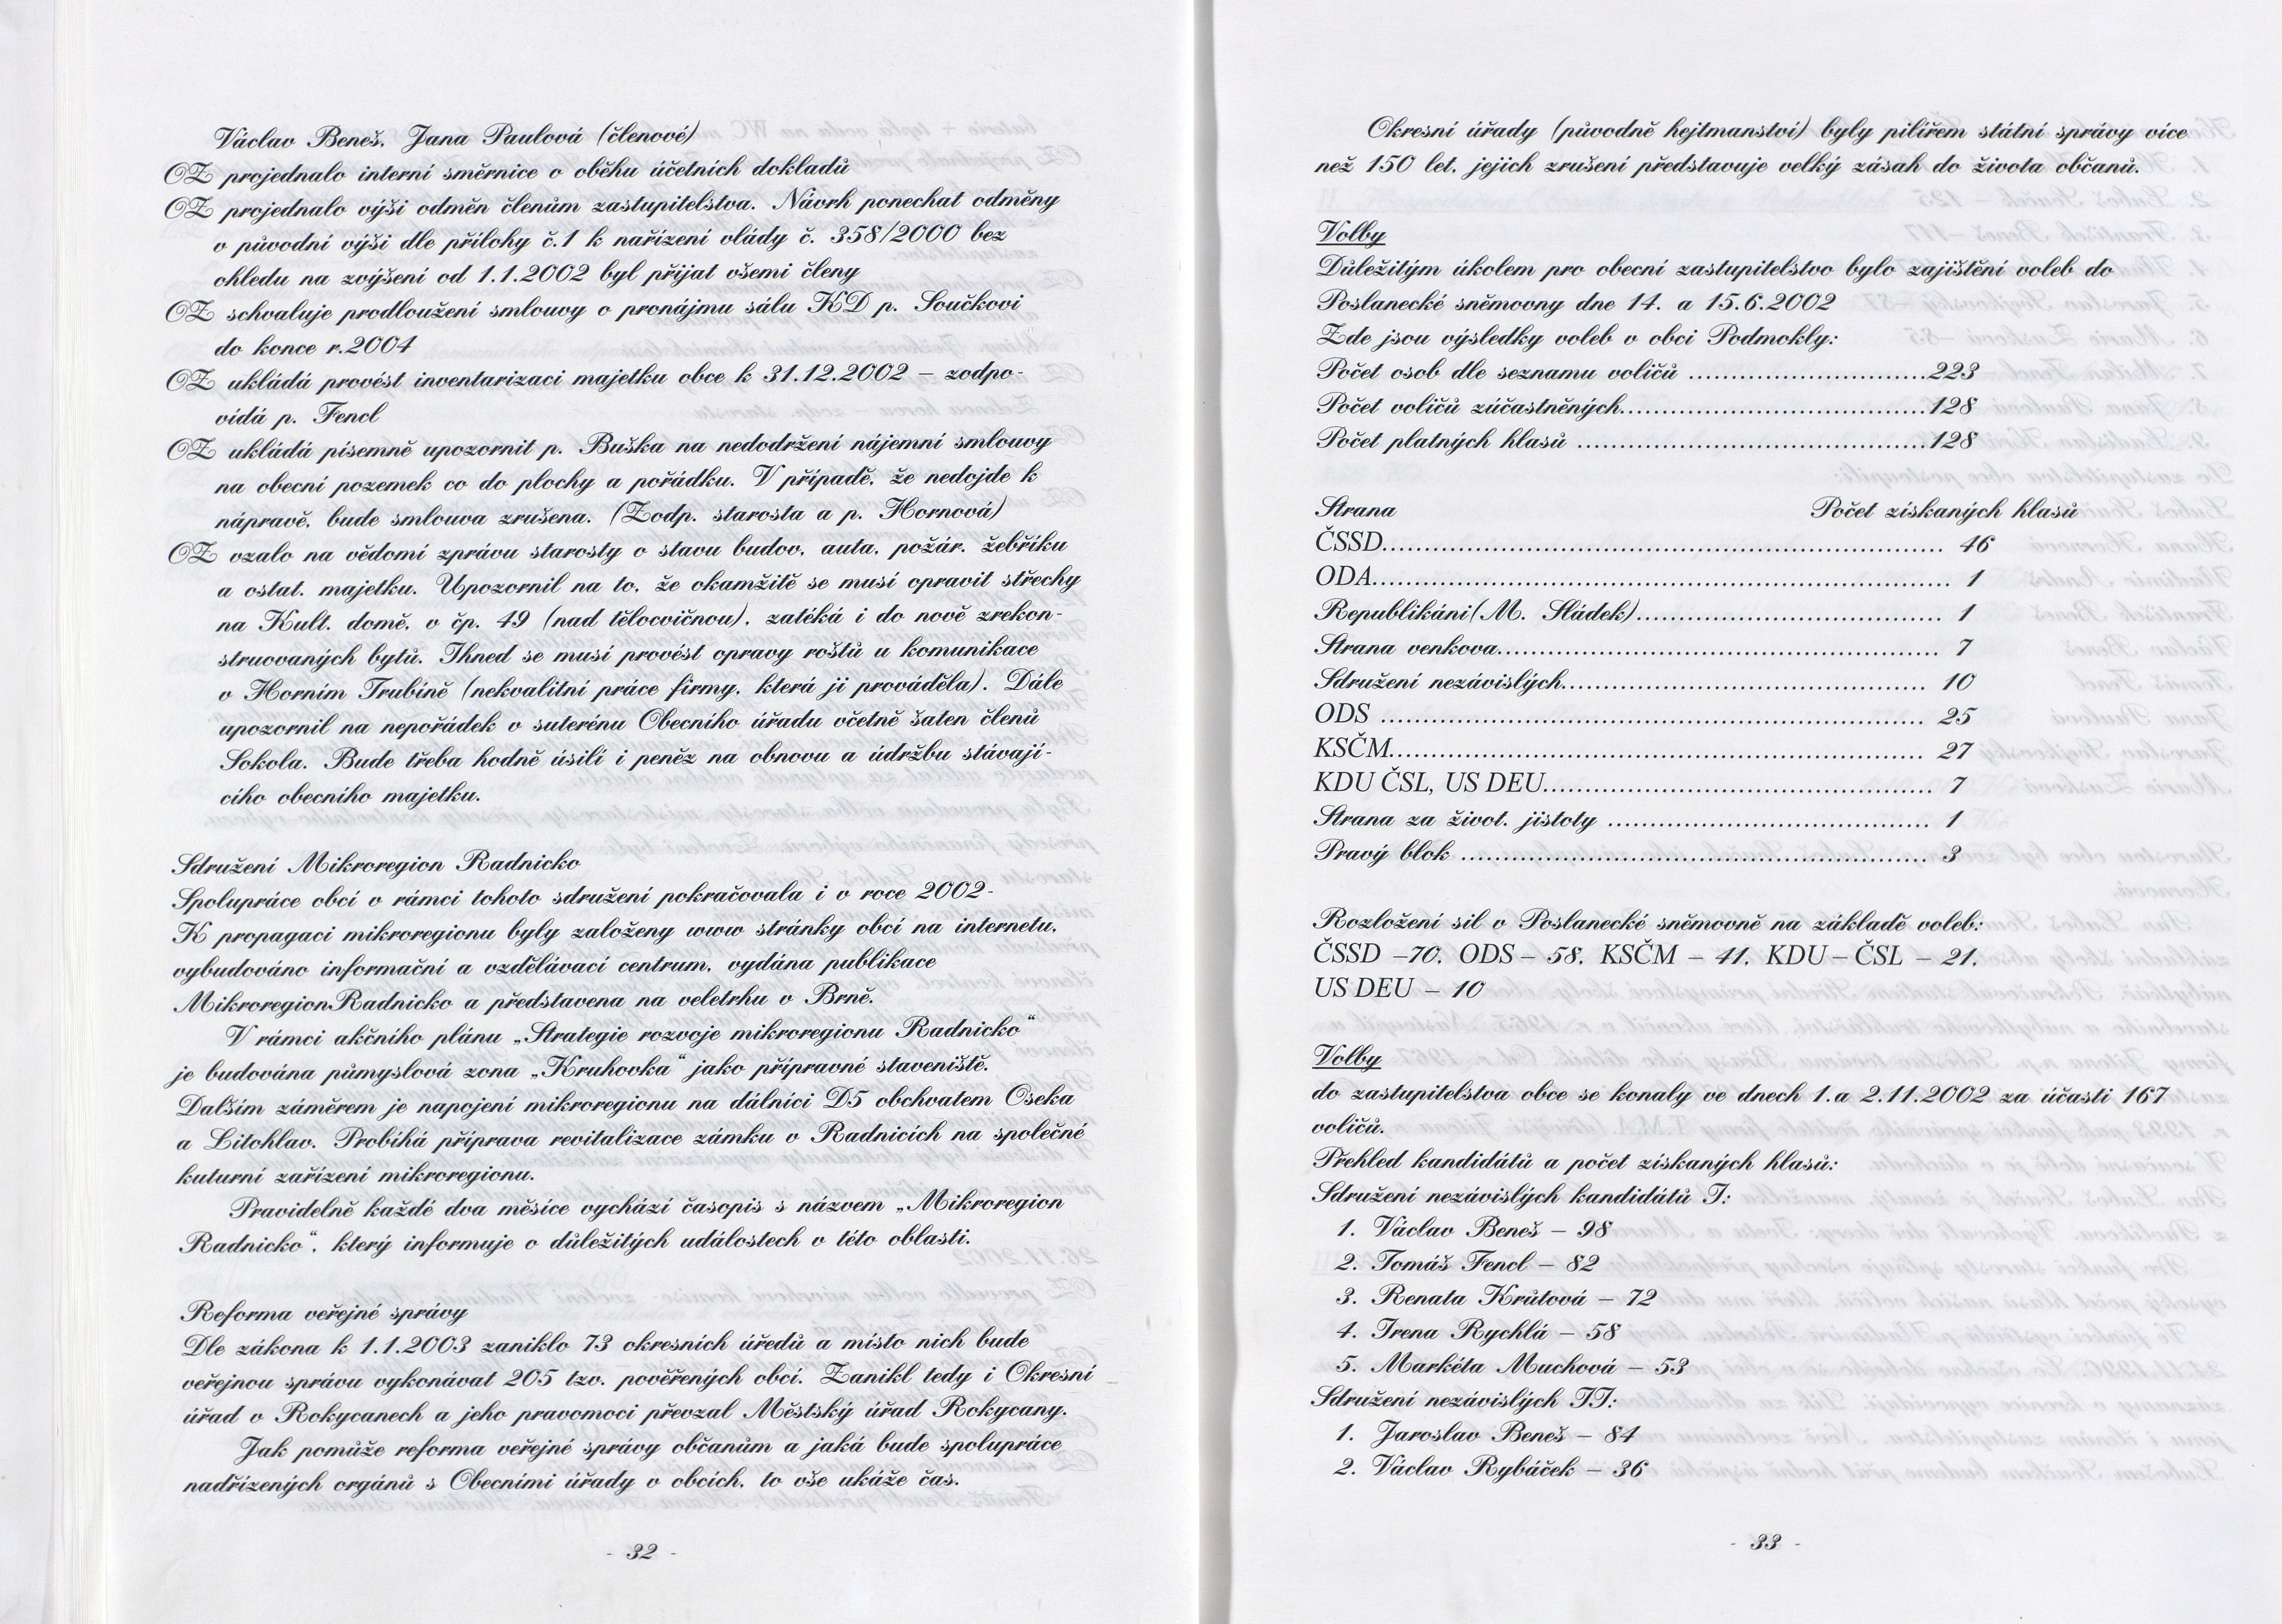 Václav Beneš, Jana Paulová (členové)
OZ projednalo interní směrnice o oběhu účetních dokladů
OZ projednalo výši odměn členům zastupitelstva. Návrh ponechat odměny
v původní výši dle přílohy č.1 k nařízení vlády č. 358/2000 bez
ohledu na zvýšení od 1.1.2002 byl přijat všemi členy
OZ schvaluje prodloužení smlouvy o pronájmu sálu KD p. Součkovi
do konce r.2004
OZ ukládá provést inventarizaci majetku obce k 31.12.2002 – zodpo-
vídá p. Fencl
OZ ukládá písemně upozornit p. Buška na nedodržení nájemní smlouvy
na obecní pozemek co do plochy a pořádku. V případě, že nedojde k
nápravě, bude smlouva zrušena. (Zodp. starosta a p. Hornová)
OZ vzalo na vědomí zprávu starosty o stavu budov, auta, požár. žebříku
a ostat. majetku. Upozornil na to, že okamžitě se musí opravit střechy
na Kult. domě, v čp. 49 (nad tělocvičnou), zatéká i do nově zrekon-
struovaných bytů. Ihned se musí provést opravy roštů u komunikace
v Horním Trubíně (nekvalitní práce firmy, která ji prováděla). Dále
upozornil na nepořádek v suterénu Obecního úřadu včetně šaten členů
Sokola. Bude třeba hodně úsilí i peněz na obnovu a údržbu stávají-
cího obecního majetku.
Sdružení Mikroregion Radnicko
Spolupráce obcí v rámci tohoto sdružení pokračovala i v roce 2002-
K propagaci mikroregionu byly založeny www stránky obcí na internetu,
vybudováno informační a vzdělávací centrum, vydána publikace
MikroregionRadnicko a představena na veletrhu v Brně.
V rámci akčního plánu „Strategie rozvoje mikroregionu Radnicko“
je budována půmyslová zona „Kruhovka“ jako přípravné staveniště.
Dalším záměrem je napojení mikroregionu na dálnici D5 obchvatem Oseka
a Litohlav. Probíhá příprava revitalizace zámku v Radnicích na společné
kuturní zařízení mikroregionu.
Pravidelně každé dva měsíce vychází časopis s názvem „Mikroregion
Radnicko“, který informuje o důležitých událostech v této oblasti.
Reforma veřejné správy
Dle zákona k 1.1.2003 zaniklo 73 okresních úředů a místo nich bude
veřejnou správu vykonávat 205 tzv. pověřených obcí. Zanikl tedy i Okresní
úřad v Rokycanech a jeho pravomoci převzal Městský úřad Rokycany.
Jak pomůže reforma veřejné správy občanům a jaká bude spolupráce
nadřízených orgánů s Obecními úřady v obcích, to vše ukáže čas.
- 32 -
Okresní úřady (původně hejtmanství) byly pilířem státní správy více
než 150 let, jejich zrušení představuje velký zásah do života občanů.
Volby
Důležitým úkolem pro obecní zastupitelstvo bylo zajištění voleb do
Poslanecké sněmovny dne 14. a 15.6.2002
Zde jsou výsledky voleb v obci Podmokly:
Počet osob dle seznamu voličů ...........................223
Počet voličů zúčastněných...................................128
Počet platných hlasů ........................................128
Strana Počet získaných hlasů
ČSSD................................................................ 46
ODA.................................................................. 1
Republikáni(M. Sládek)...................................... 1
Strana venkova.................................................. 7
Sdružení nezávislých......................................... 10
ODS .............................................................. 25
KSČM............................................................. 27
KDU ČSL, US DEU............................................ 7
Strana za život. jistoty ..................................... 1
Pravý blok ..................................................... 3
Rozložení sil v Poslanecké sněmovně na základě voleb:
ČSSD –70, ODS – 58, KSČM – 41, KDU – ČSL – 21,
US DEU – 10
Volby
do zastupitelstva obce se konaly ve dnech 1.a 2.11.2002 za účasti 167
voličů.
Přehled kandidátů a počet získaných hlasů:
Sdružení nezávislých kandidátů I:
1. Václav Beneš – 98
2. Tomáš Fencl – 82
3. Renata Krůtová – 72
4. Irena Rychlá – 58
5. Markéta Muchová – 53
Sdružení nezávislých II:
1. Jaroslav Beneš – 84
2. Václav Rybáček – 36
- 33 -